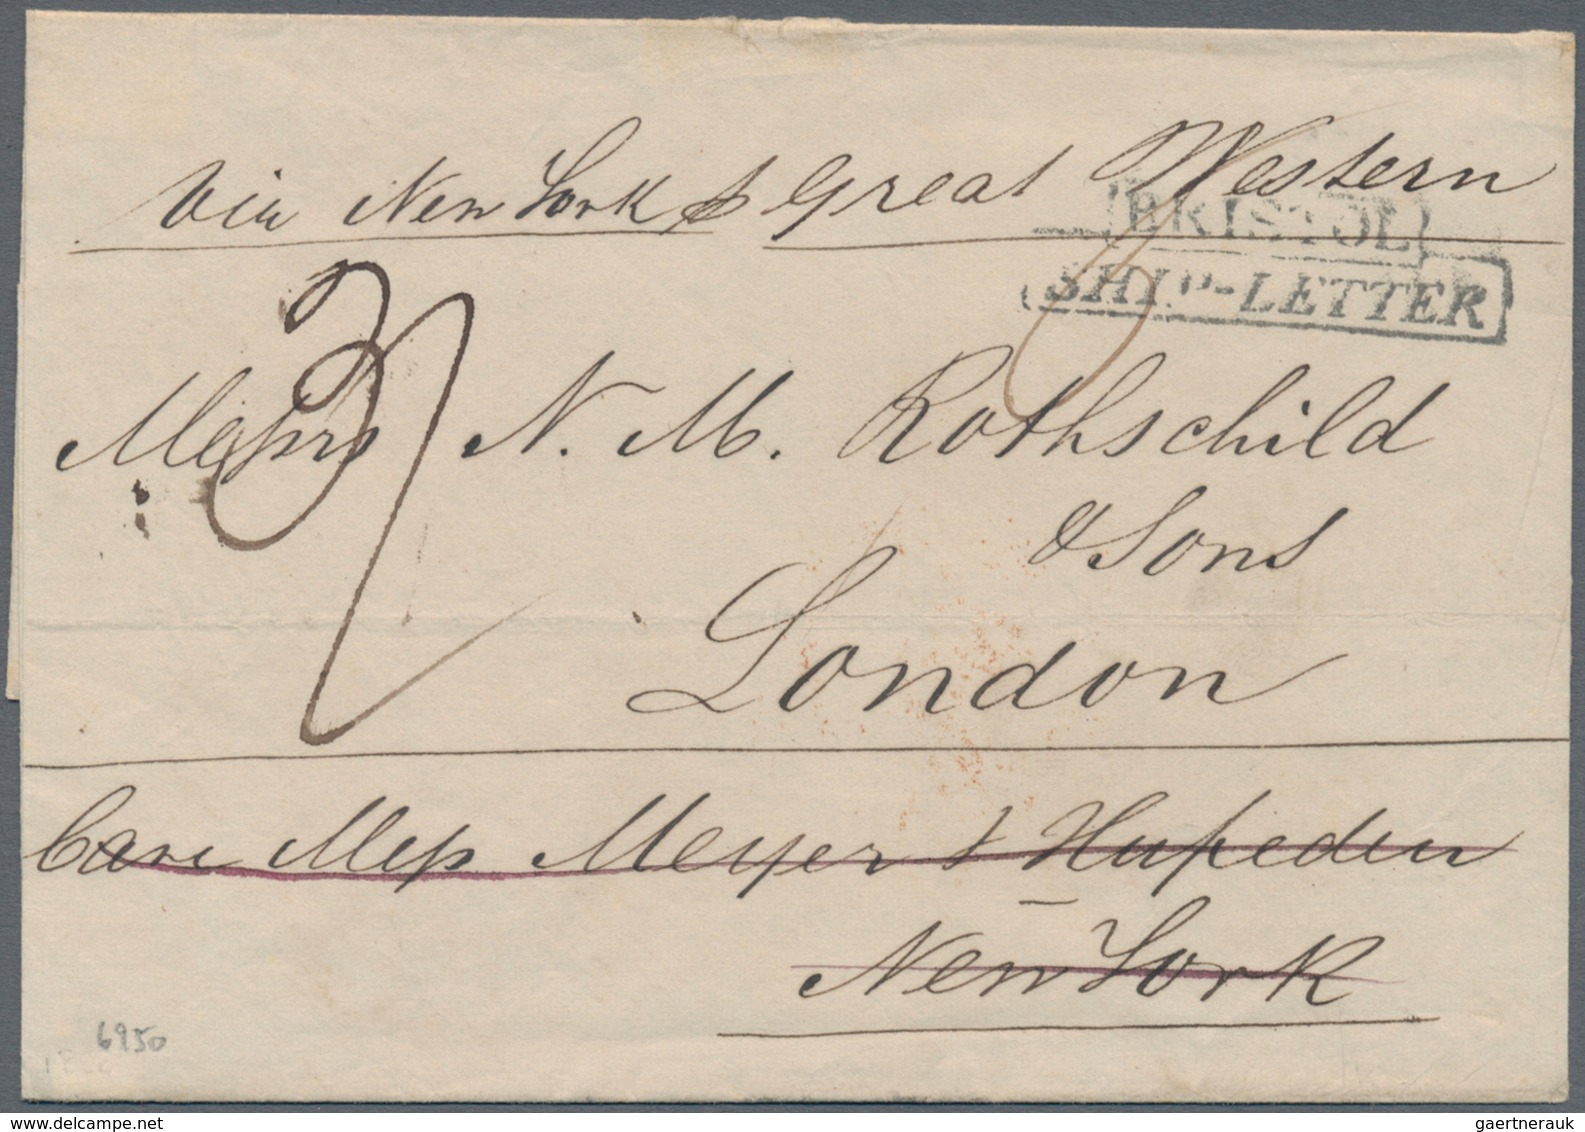 Via New York p Great Western
BRISTOL
SHIP-LETTER
Messrs N. M. Rothschild
& Sons
London
Care Mess Meyer & Hupeden
New York
6950
gaertnerauk